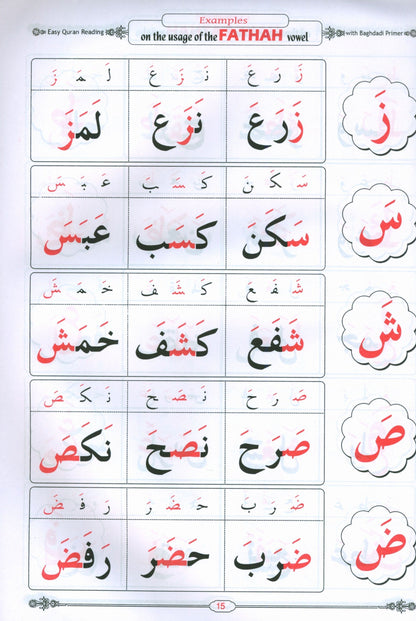 Examples
Easy Quran Reading on the usage of the FATHAH vowel with Baghdadi Primer
زَ رَ عَ نَ زَ عَ لَ مَ زَ
زَ زَرَعَ نَزَعَ لَمَزَ
سَ كَ نَ كَ سَ بَ عَ بَ سَ
سَ سَكَنَ كَسَبَ عَبَسَ
شَ فَ عَ كَ شَ فَ خَ مَ شَ
شَ شَفَعَ كَشَفَ خَمَشَ
صَ رَ حَ نَ صَ حَ نَ كَ صَ
صَ صَرَحَ نَصَحَ نَكَصَ
ضَ رَ بَ حَ ضَ رَ رَ فَ ضَ
ضَ ضَرَبَ حَضَرَ رَفَضَ
15